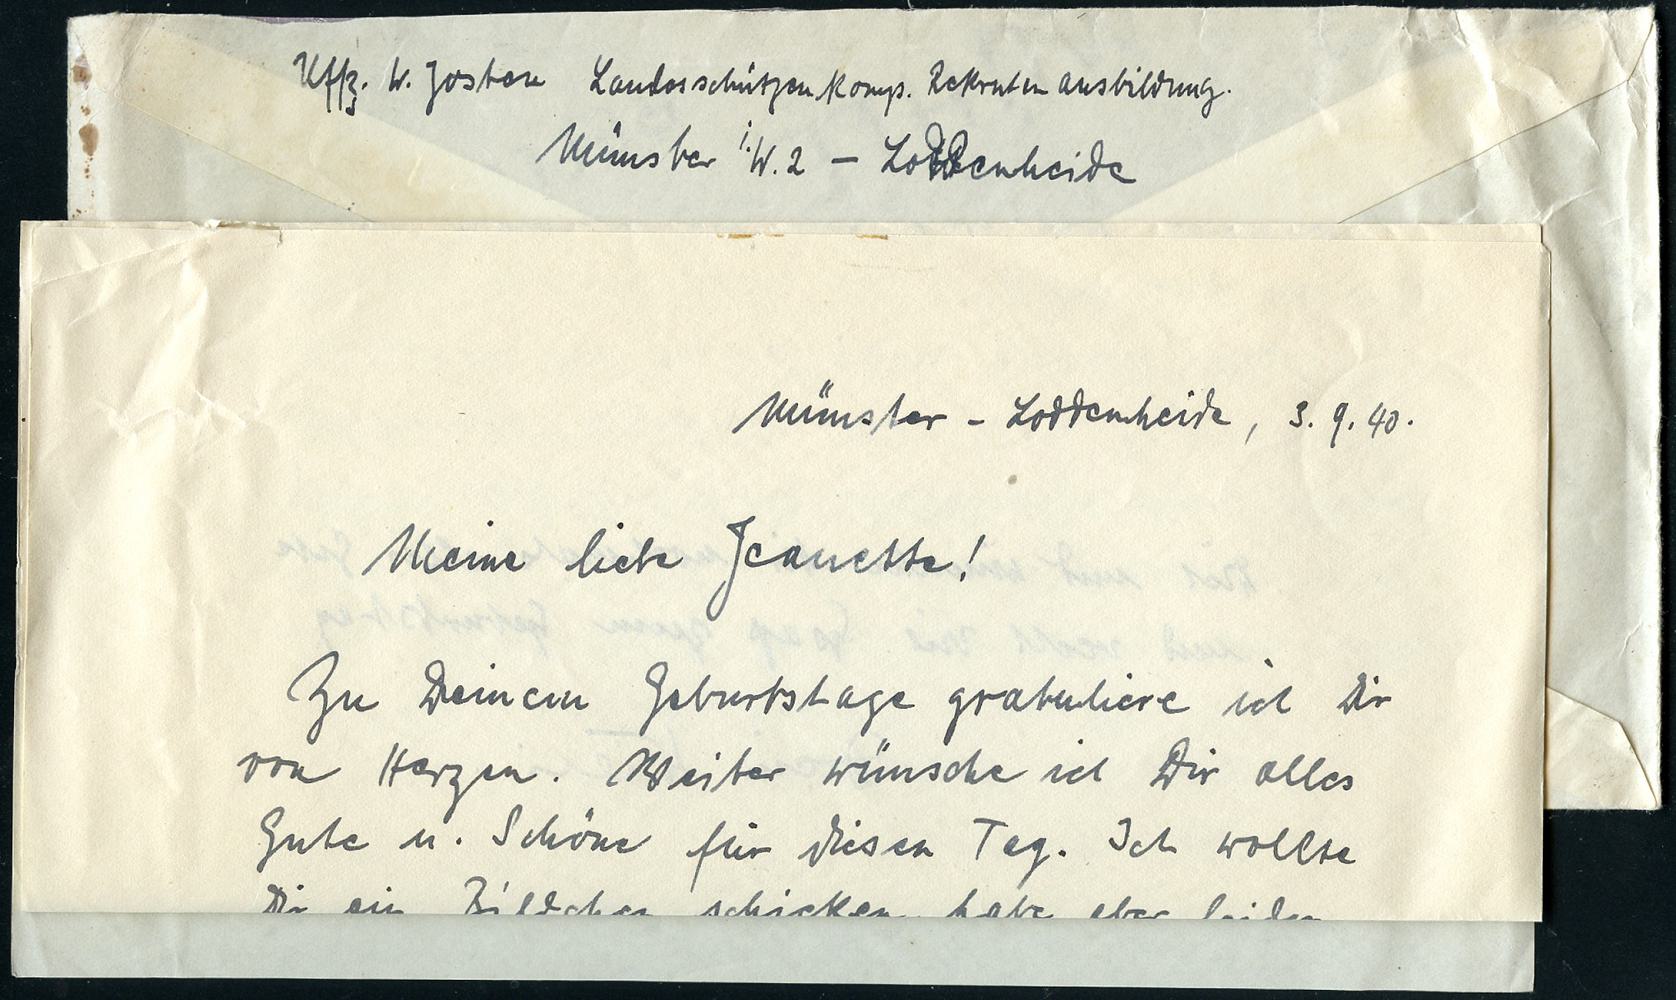 Uffz. W. Josten Landesschützen Komp. Rekruten ausbildung.
Münster i. W. 2 – Loddenheide
Münster - Loddenheide, 3. 9. 40.
Meine liebe Jeanette!
Zu Deinem Geburtstage gratuliere ich Dir
von Herzen. Weiter wünsche ich Dir alles
Gute u. Schöne für diesen Tag. Ich wollte
Dir ein Bildchen schicken, habe aber leider